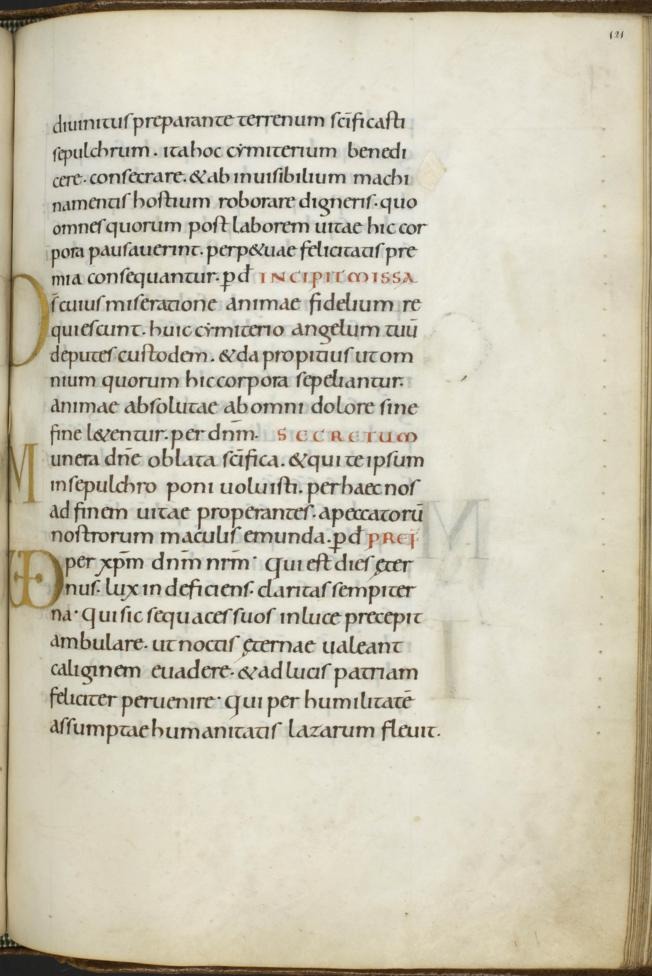 121
diuinitus preparante terrenum sc̄ificasti
sepulchrum. ita hoc cẏmiterium benedi
cere. consecrare. & ab inuisibilium machi
namentis hostium roborare digneris. quo
omnes quorum post laborem uitae hic cor
pora pausauerint. perp&uae felicitatis pre
mia consequantur. p̄ d̄ INCIPIT MISSA
D s̄ cuius miseratione animae fidelium re
quiescunt. huic cẏmiterio angelum tuū
deputes custodem. & da propitius ut om
nium quorum hic corpora sepeliantur.
animae absolutae ab omni dolore sine
fine l&entur. per dn̄m. SECRETUM
M unera dn̄e oblata sc̄ifica. & qui te ipsum
in sepulchro poni uoluisti. per haec nos
ad finem uitae properantes. a peccatorū
nostrorum maculis emunda. p̄ d̄ PREF
UD per xp̄m dn̄m nr̄m. qui est dies ęter
nus. lux indeficiens. claritas sempiter
na. qui sic sequaces suos in luce precepit
ambulare. ut noctis ęternae ualeant
caliginem euadere. & ad lucis patriam
feliciter peruenire. qui per humilitatē
assumptae humanitatis lazarum fleuit.